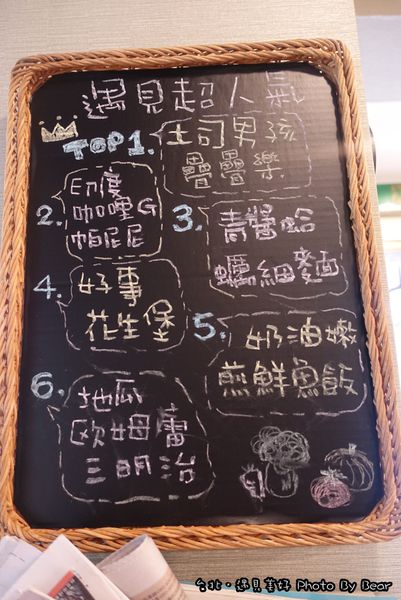 遇見超人氣
TOP 1.
土司男孩
疊疊樂
2.
印度
咖哩G
帕尼尼
3.
青醬蛤
蠣細麵
4.
好事
花生堡
5.
奶油嫩
煎鮮魚飯
6.
地瓜
歐姆蕾
三明治
台北・遇見美好 Photo By Bear